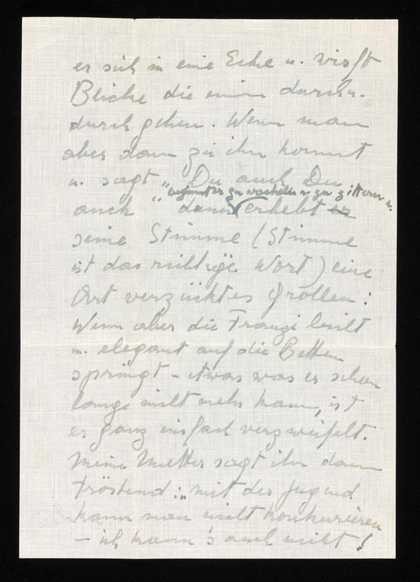 er sich in eine Ecke u. wirft
Blicke die einem durch u.
durch gehen. Wenn man
aber dann zu ihm kommt
u. sagt „Du auch Du
zu wackeln u. zu zittern u.
auch“ dann erhebt er
seine Stimme (Stimme
ist das richtige Wort) eine
Art verzücktes Grollen:
Wenn aber die Franzi leicht
u. elegant auf die Betten
springt – etwas was er schon
lange nicht mehr kann, ist
er ganz einfach verzweifelt.
Meine Mutter sagt ihm dann
tröstend: „mit der Jugend
kann man nicht konkurieren
– ich kann's auch nicht!